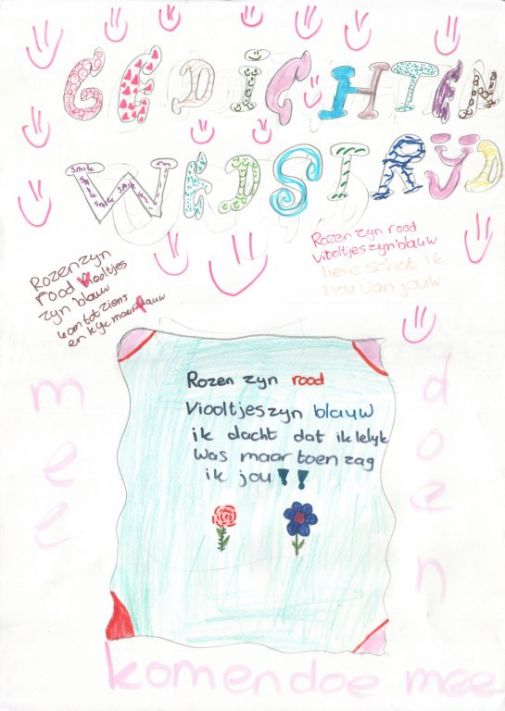 GEDICHTEN
WEDSTRYD
smile
smile
smile
Rozen zyn rood
viooltjes zyn blauw
lieve schat ik
hou van jouw
Rozen zyn
rood viooltjes
zyn blauw
kom tot ziens
en kyk maar
mee
doen
Rozen zyn rood
Viooltjes zyn blauw
ik dacht dat ik lelyk
was maar toen zag
ik jou!!
kom en doe mee